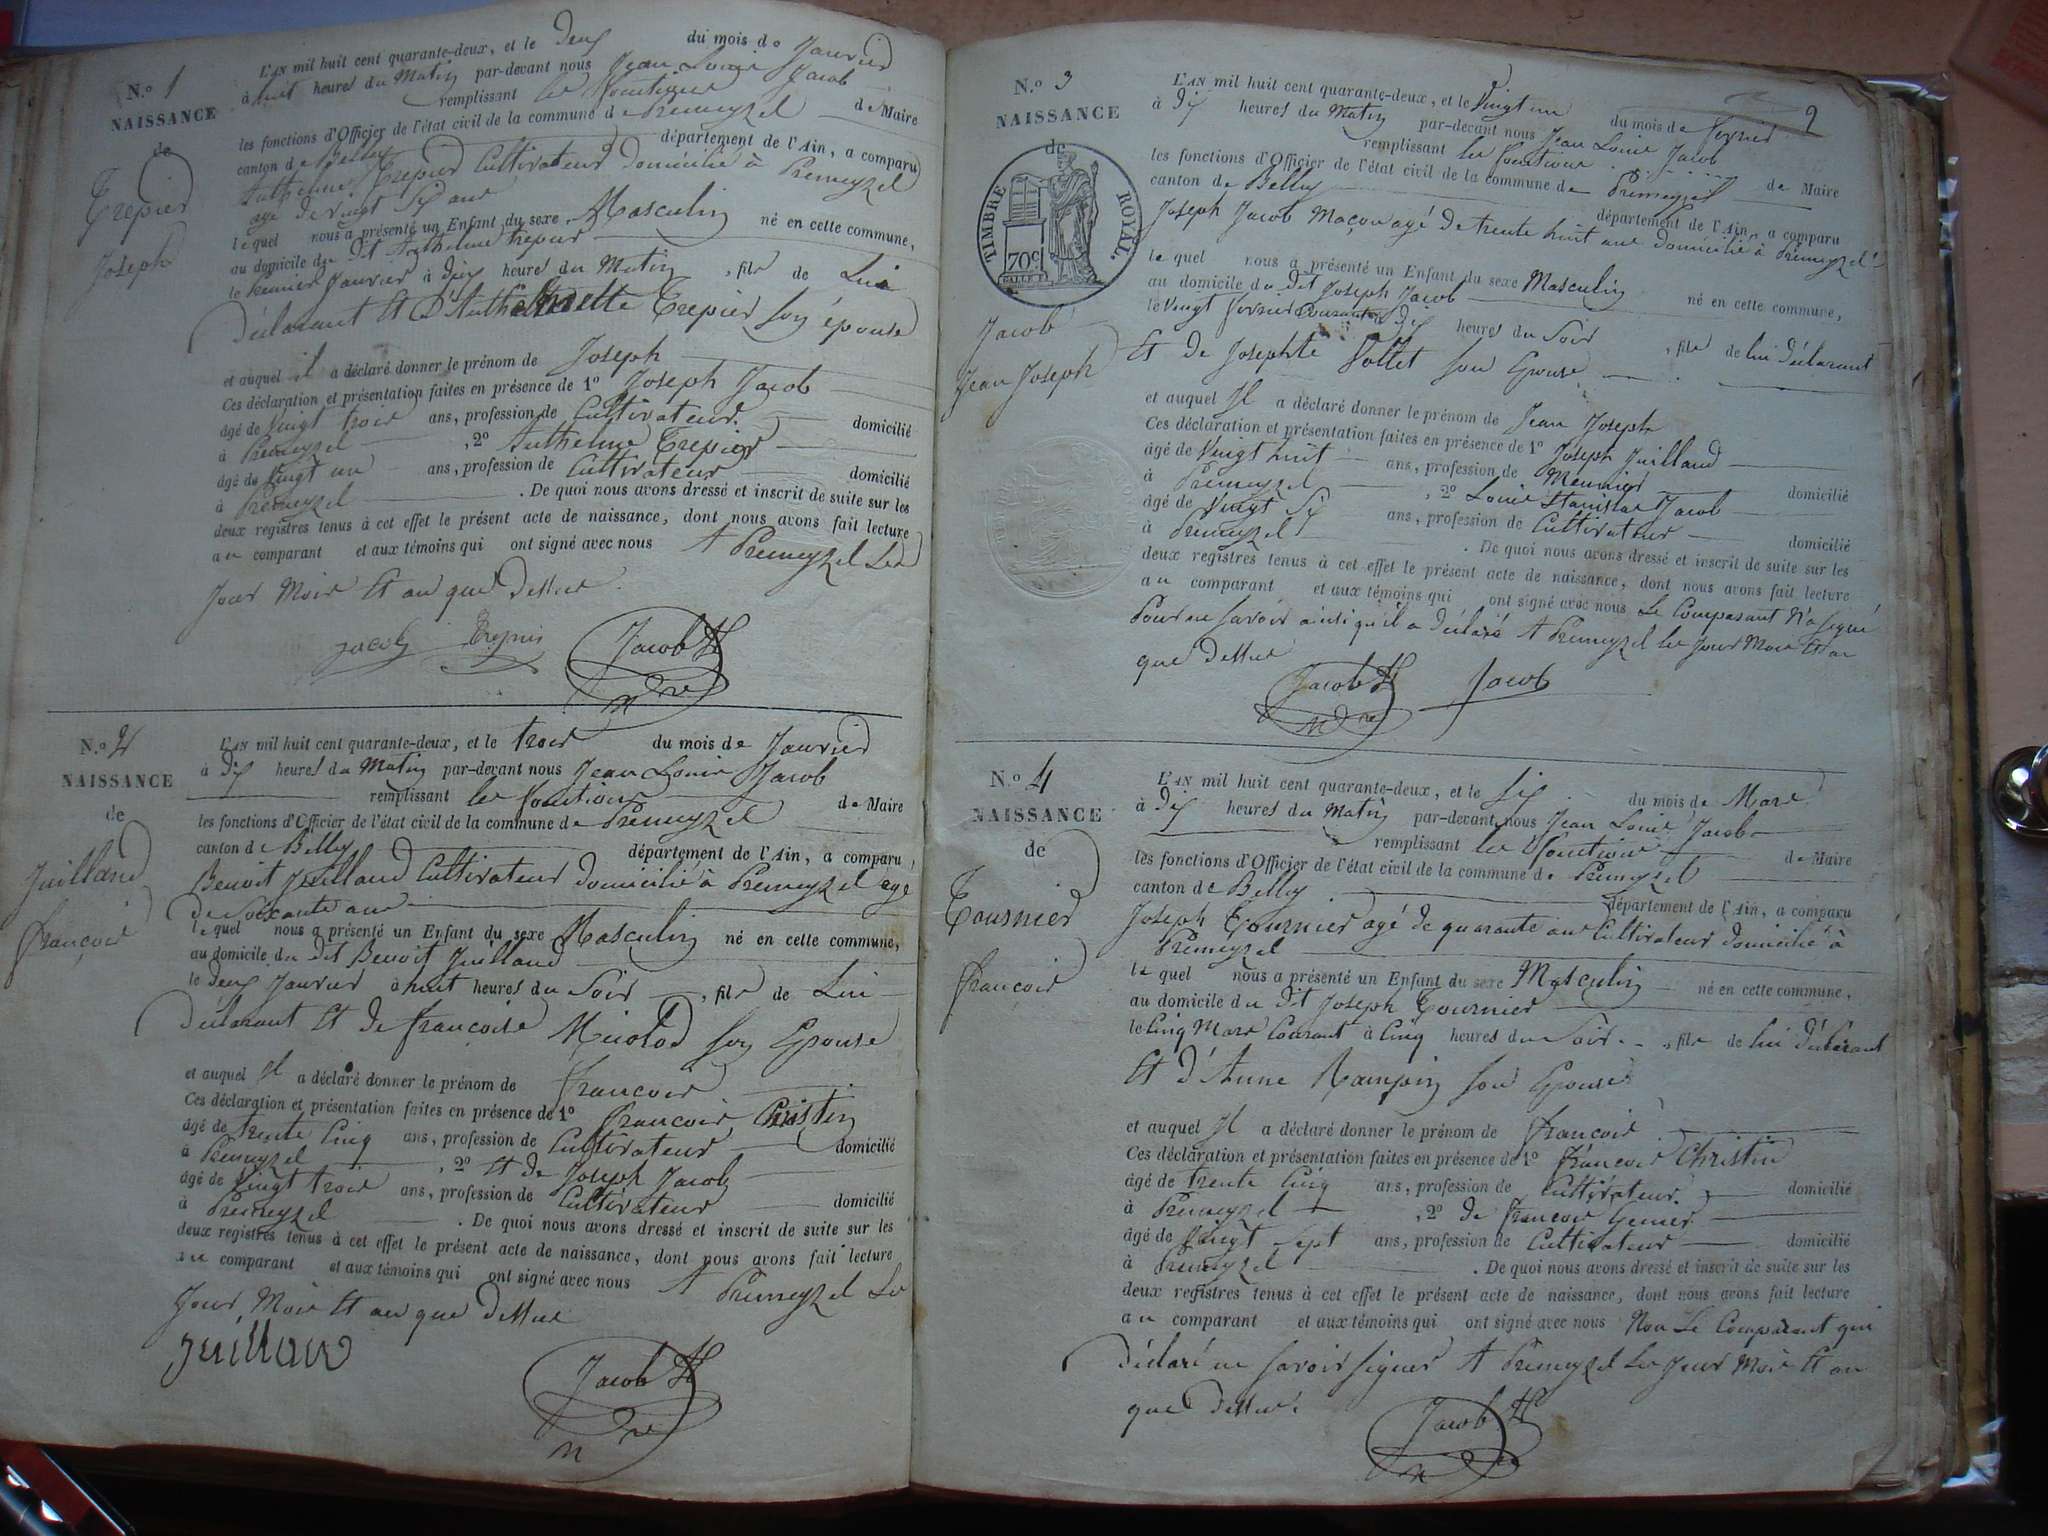 N.º 1
NAISSANCE
de
Trepier
Joseph
L'AN mil huit cent quarante-deux, et le deux du mois de Janvier
à huit heures du Matin par-devant nous Jean Louis Jacob
remplissant les fonctions de Maire
les fonctions d'Officier de l'état civil de la commune de Premeyzel
canton de Belley département de l'Ain, a comparu
Anthelme Trepier Cultivateur domicilié à Premeyzel
agé de vingt six ans
le quel nous a présenté un Enfant du sexe Masculin né en cette commune,
au domicile du dit Anthelme Trepier
le Premier Janvier à dix heures du Matin, fils de Lui
Déclarant Et D'Anthelmette Trepier son épouse
et auquel il a déclaré donner le prénom de Joseph
Ces déclaration et présentation faites en présence de 1º Joseph Jacob
âgé de vingt trois ans, profession de Cultivateur domicilié
à Premeyzel, 2º Anthelme Trepier
âgé de vingt un ans, profession de Cultivateur domicilié
à Premeyzel. De quoi nous avons dressé et inscrit de suite sur les
deux registres tenus à cet effet le présent acte de naissance, dont nous avons fait lecture
au comparant et aux témoins qui ont signé avec nous A Premeyzel Les
Jour Mois Et an que dessus
Jacob Trepier Jacob
N.º 2
NAISSANCE
de
Juilland
françois
L'AN mil huit cent quarante-deux, et le trois du mois de Janvier
à dix heures du Matin par-devant nous Jean Louis Jacob
remplissant les fonctions de Maire
les fonctions d'Officier de l'état civil de la commune de Premeyzel
canton de Belley département de l'Ain, a comparu
Benoit Juilland Cultivateur domicilié à Premeyzel agé
de soixante ans
le quel nous a présenté un Enfant du sexe Masculin né en cette commune,
au domicile du dit Benoit Juilland
le deux Janvier à huit heures du Soir, fils de Lui
Déclarant Et de françoise son Epouse
et auquel Il a déclaré donner le prénom de françois
Ces déclaration et présentation faites en présence de 1º françois Christin
âgé de trente Cinq ans, profession de Cultivateur domicilié
à Premeyzel, 2º Et de Joseph Jacob
âgé de vingt trois ans, profession de Cultivateur domicilié
à Premeyzel. De quoi nous avons dressé et inscrit de suite sur les
deux registres tenus à cet effet le présent acte de naissance, dont nous avons fait lecture
au comparant et aux témoins qui ont signé avec nous A Premeyzel Les
Jour Mois Et an que dessus
Juilland
Jacob
2
N.º 3
NAISSANCE
de
TIMBRE ROYAL.
70c
Jacob
Jean Joseph
L'AN mil huit cent quarante-deux, et le Vingt un du mois de fevrier
à Dix heures du Matin par-devant nous Jean Louis Jacob
remplissant les fonctions de Maire
les fonctions d'Officier de l'état civil de la commune de Premeyzel
canton de Belley département de l'Ain, a comparu
Joseph Jacob Maçon agé de trente huit ans domicilié à Premeyzel
le quel nous a présenté un Enfant du sexe Masculin né en cette commune,
au domicile du dit Joseph Jacob
le Vingt fevrier courant à dix heures du Soir, fils de lui déclarant
Et de Josephte Pollet son Epouse
et auquel Il a déclaré donner le prénom de Jean Joseph
Ces déclaration et présentation faites en présence de 1º Joseph Juilland
âgé de Vingt huit ans, profession de Meunier domicilié
à Premeyzel, 2º Louis Stanislas Jacob
âgé de Vingt Six ans, profession de Cultivateur domicilié
à Premeyzel. De quoi nous avons dressé et inscrit de suite sur les
deux registres tenus à cet effet le présent acte de naissance, dont nous avons fait lecture
au comparant et aux témoins qui ont signé avec nous Le Comparant N'a signé
Pour ne savoir ainsi qu'il a déclaré A Premeyzel les Jour Mois Et an
que dessus
Jacob Jacob
N.º 4
NAISSANCE
de
Tournier
françois
L'AN mil huit cent quarante-deux, et le Six du mois de Mars
à Dix heures du Matin par-devant nous Jean Louis Jacob
remplissant les fonctions de Maire
les fonctions d'Officier de l'état civil de la commune de Premeyzel
canton de Belley département de l'Ain, a comparu
Joseph Tournier agé de quarante ans Cultivateur domicilié à
Premeyzel
le quel nous a présenté un Enfant du sexe Masculin né en cette commune,
au domicile du dit Joseph Tournier
le Cinq Mars Courant à Cinq heures du Soir, fils de lui déclarant
Et d'Anne son Epouse
et auquel Il a déclaré donner le prénom de françois
Ces déclaration et présentation faites en présence de 1º françois Christin
âgé de trente Cinq ans, profession de Cultivateur domicilié
à Premeyzel, 2º de françois
âgé de Vingt Sept ans, profession de Cultivateur domicilié
à Premeyzel. De quoi nous avons dressé et inscrit de suite sur les
deux registres tenus à cet effet le présent acte de naissance, dont nous avons fait lecture
au comparant et aux témoins qui ont signé avec nous Non Le Comparant qui
déclaré ne savoir signer A Premeyzel Les Jour Mois Et an
que dessus
Jacob